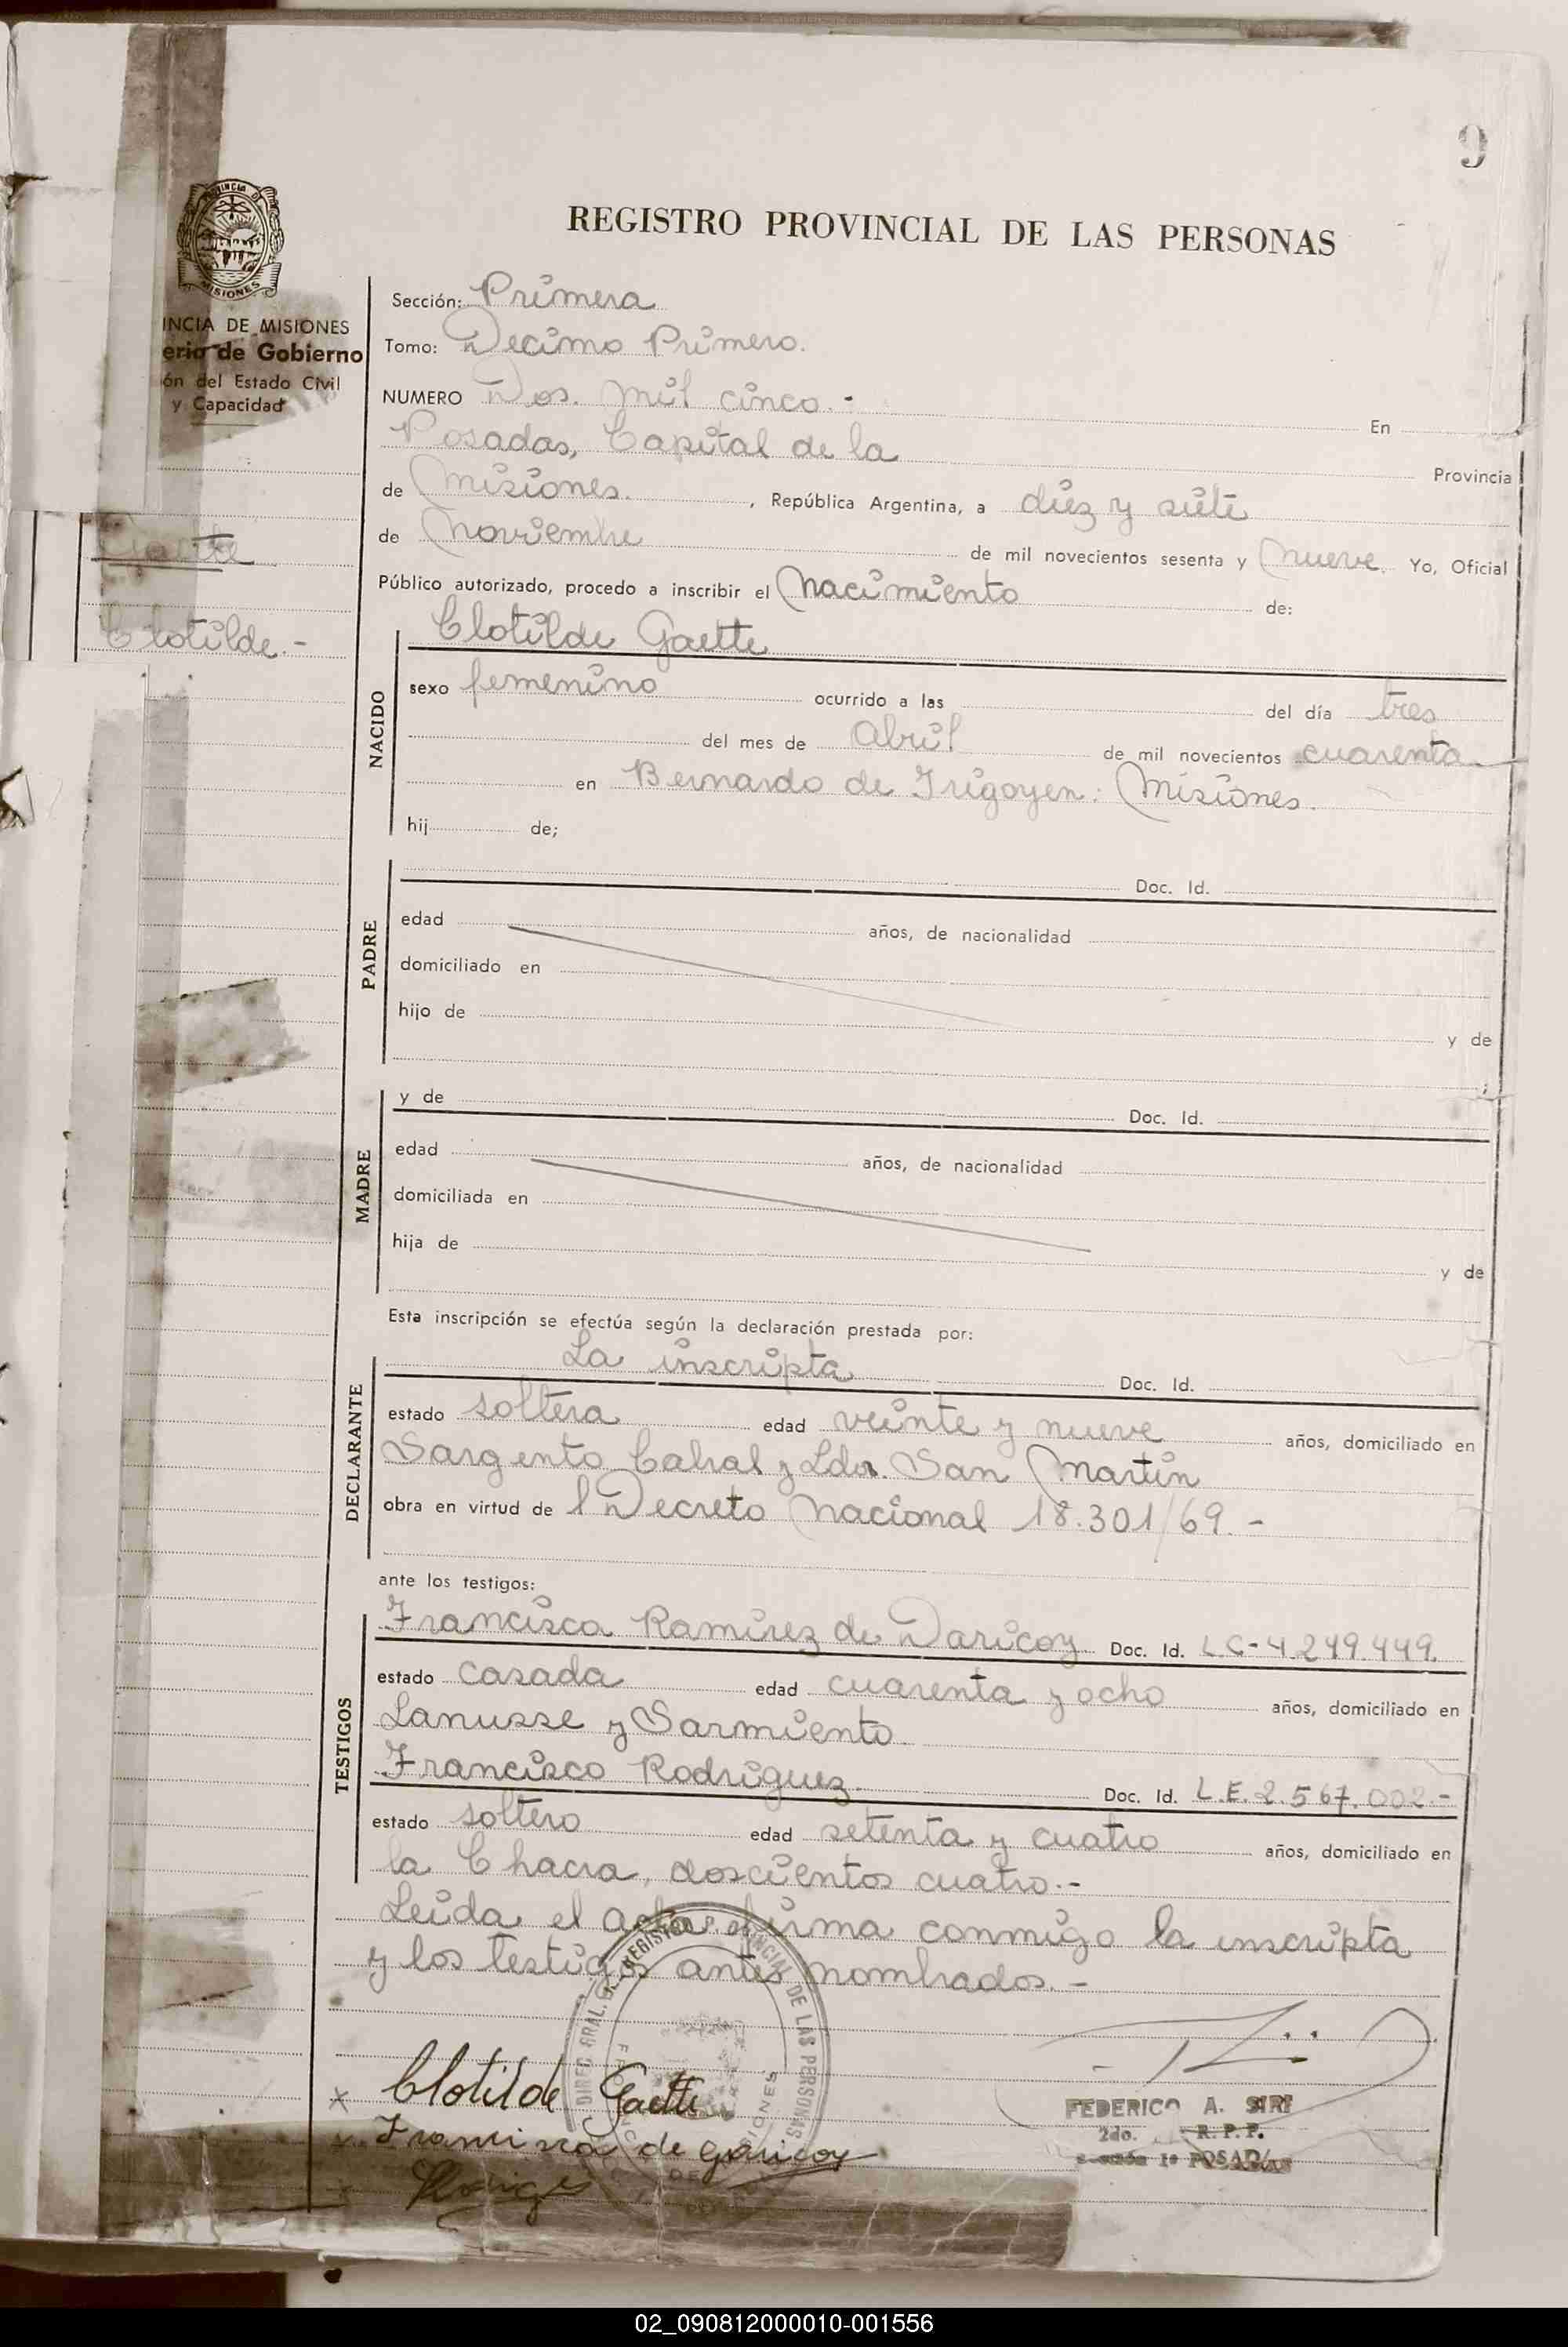 9
PROVINCIA DE
MISIONES
REGISTRO PROVINCIAL DE LAS PERSONAS
INCIA DE MISIONES
erio de Gobierno
ón del Estado Civil
y Capacidad
Gaette
Clotilde.-
Sección: Primera
Tomo: Decimo Primero.
NUMERO Dos. mil cinco.- En
Posadas, Capital de la Provincia
de Misiones. , República Argentina, a diez y siete
de Noviembre de mil novecientos sesenta y Nueve. Yo, Oficial
Público autorizado, procedo a inscribir el Nacimiento de:
NACIDO
Clotilde Gaette
sexo femenino ocurrido a las del día tres
del mes de Abril de mil novecientos cuarenta
en Bernardo de Irigoyen: Misiones.
hij de;
PADRE
Doc. Id.
edad años, de nacionalidad
domiciliado en
hijo de y de
;
MADRE
y de Doc. Id.
edad años, de nacionalidad
domiciliada en
hija de y de
Esta inscripción se efectúa según la declaración prestada por:
DECLARANTE
La inscripta Doc. Id.
estado soltera edad veinte y nueve años, domiciliado en
Sargento Cabral y Ldor. San Martin
obra en virtud de l Decreto Nacional 18.301/69.-
ante los testigos:
TESTIGOS
Francisca Ramirez de Daricoy Doc. Id. L.C-4.249.449.
estado casada edad cuarenta y ocho años, domiciliado en
Lanusse y Sarmiento.
Francisco Rodriguez. Doc. Id. L.E.2.567.002.-
estado soltero edad setenta y cuatro años, domiciliado en
la Chacra, doscientos cuatro.-
Leida el acta firma conmigo la inscripta
y los testigos antes nombrados.-
DIREC. GRAL. REGISTRO PROVINCIAL DE LAS PERSONAS
Clotilde Gaette
Francisca de Garicoy
FEDERICO A. SIRI
2do. R. P. P.
Sección 1ª POSADAS
02_090812000010-001556